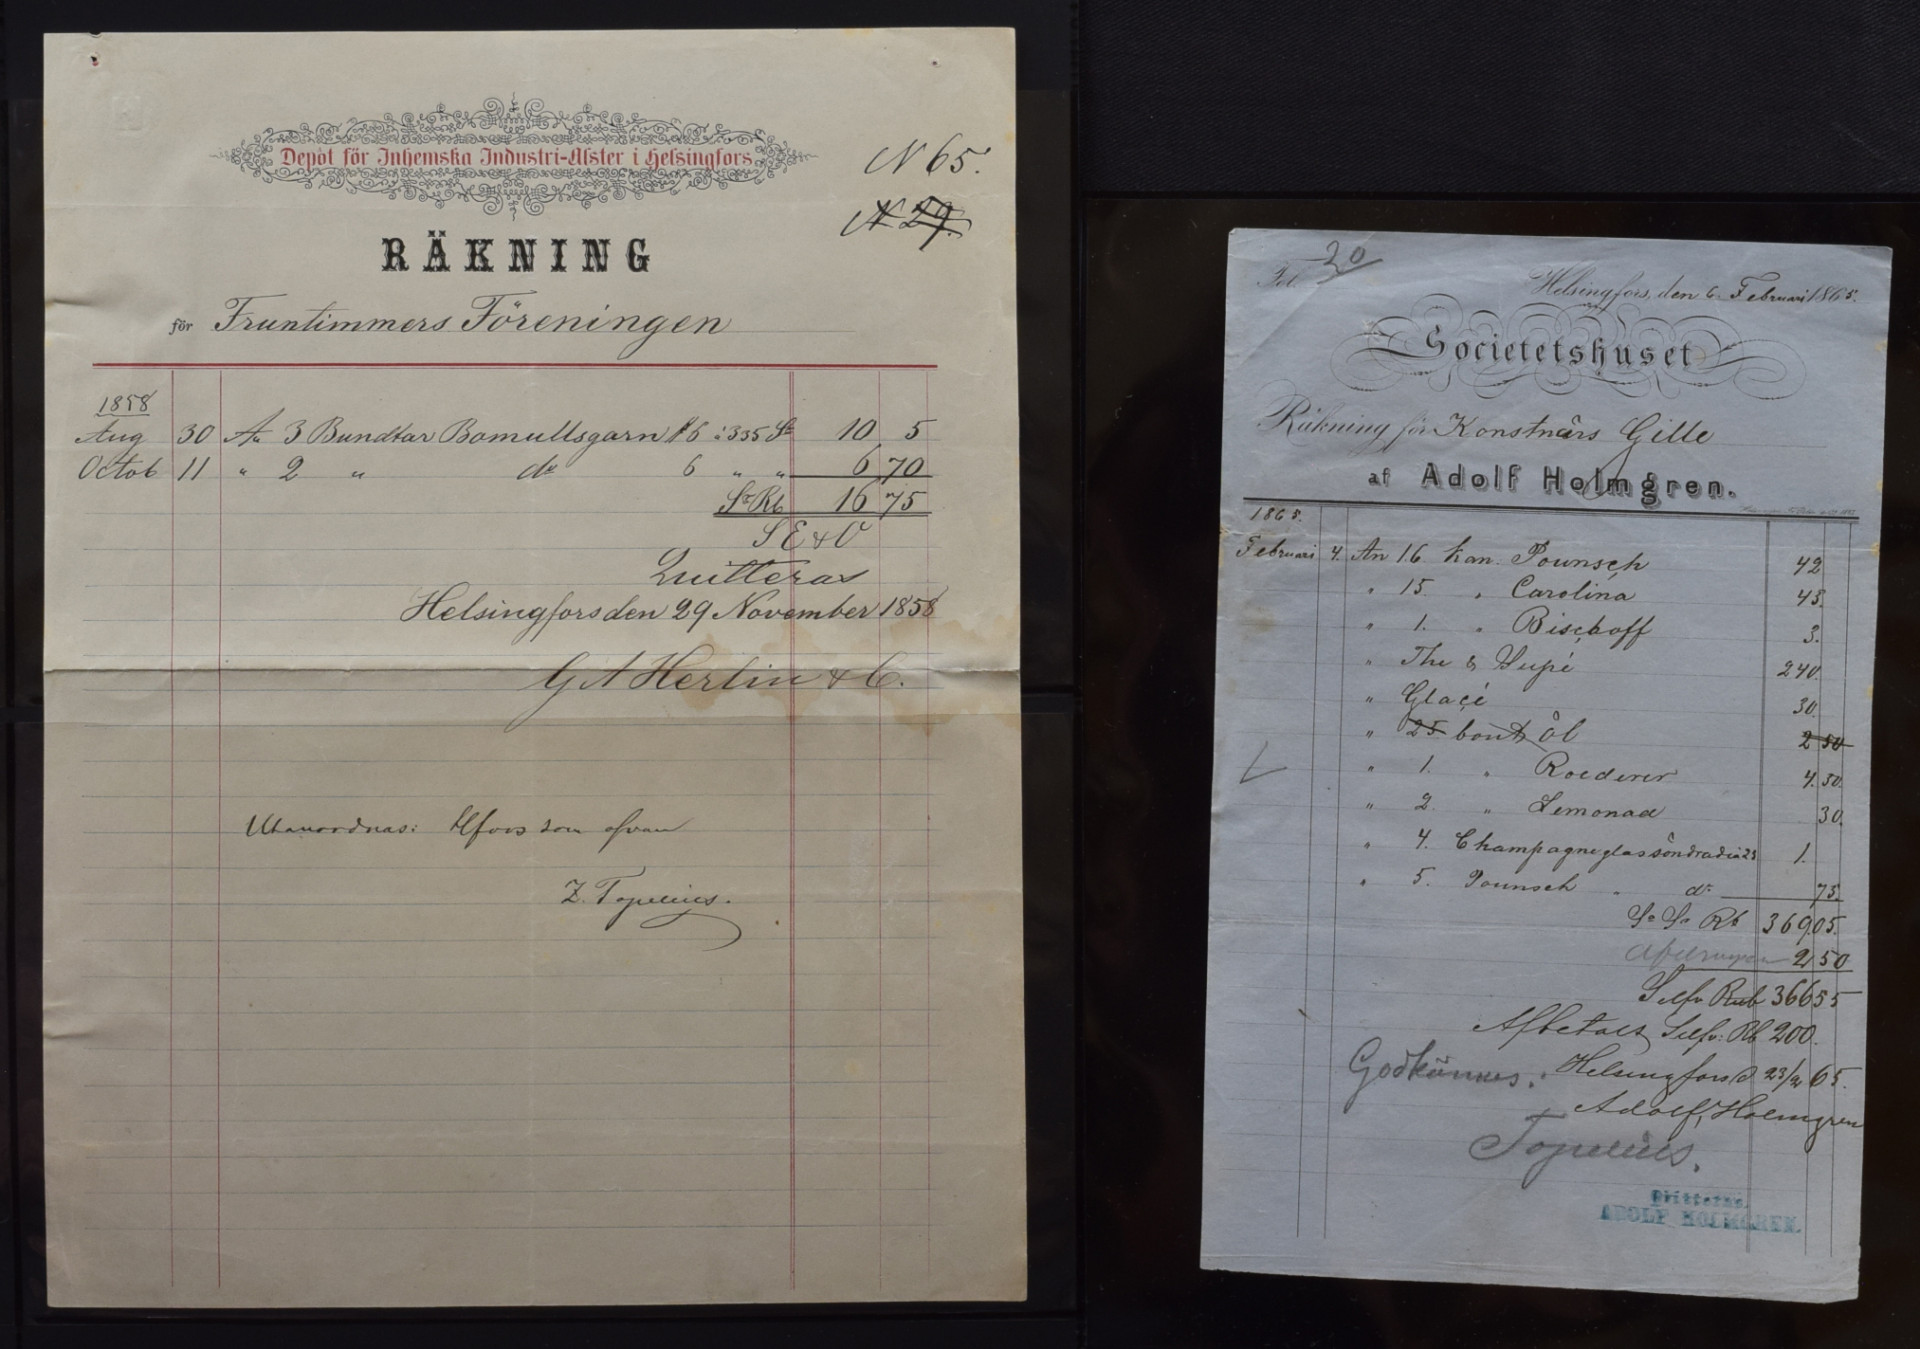 Depôt för Inhemska Industri-Alster i Helsingfors.
N 65.
N 29.
RÄKNING
för Fruntimmers Föreningen
1858
Aug 30 An 3 Bundtar Bomullsgarn № 6 : 335 Sr 10 5
Octob 11 " 2 " do 6 " " 6 70
Sr Rb 16 75
S E & O
Quitteras
Helsingfors den 29 November 1858
G A Herlin & C.
Utanordnas: Hfors som ofvan
Z. Topelius.
Fol 20
Helsingfors, den 6 Februari 1865.
Societetshuset
Räkning för Konstnärs Gille
af Adolf Holmgren.
1865.
Februari 4. An 16 kan. Pounsch 42
" 15. " Carolina 45.
" 1. " Bischoff 3.
" The & Supé 240.
" Glacé 30.
" 25 bout öl 2 50
" 1. " Roederer 4. 50.
" 2. " Lemonad 30.
" 4. Champagneglas söndradia 25 1.
" 5. Pounsch " do 75.
Sa Sr Rb 369.05.
2 50
Silfv Rub 366 55
Afbetalt Silfv: Rb 200.
Godkännes. Helsingfors d 23/2 65.
Adolf Holmgren
Topelius.
Qvitteras.
ADOLF HOLMGREN.